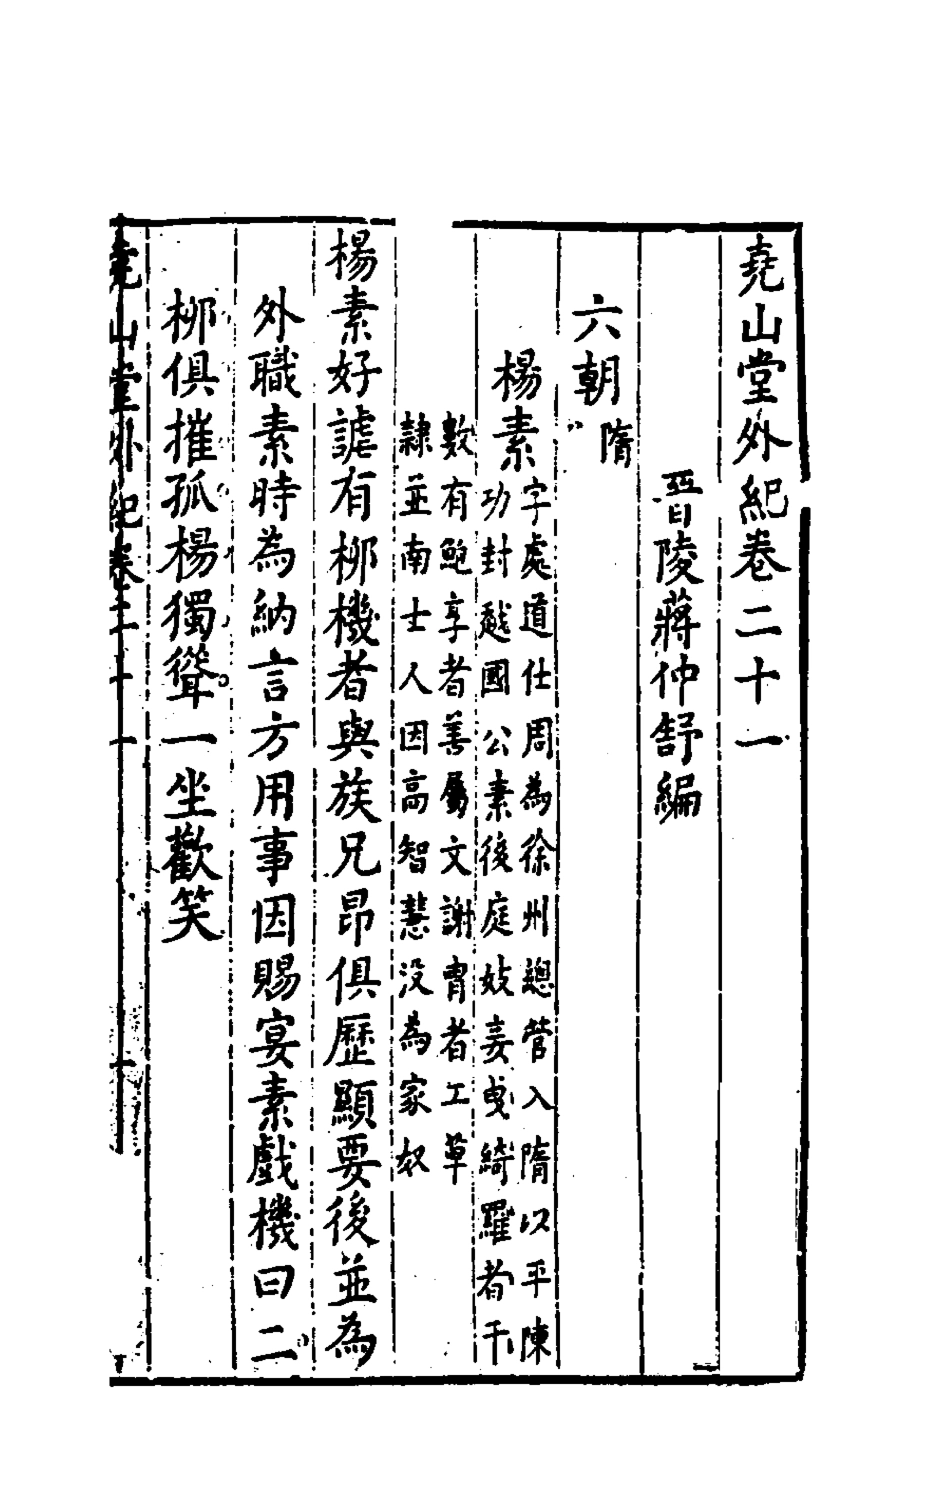 堯山堂外紀卷二十一
晉陵蔣仲舒編
六朝 隋
楊素 字處道仕周為徐州總管入隋以平陳
功封越國公素後庭妓妾曳綺羅者千
數有鮑亨者善屬文謝胄者工草
隸並南士人因高智慧没為家奴
楊素好謔有柳機者與族兄昂俱歷顯要後並為
外職素時為納言方用事因賜宴素戲機曰二
柳俱摧孤楊獨聳一坐歡笑
堯山堂外紀卷二十一 一